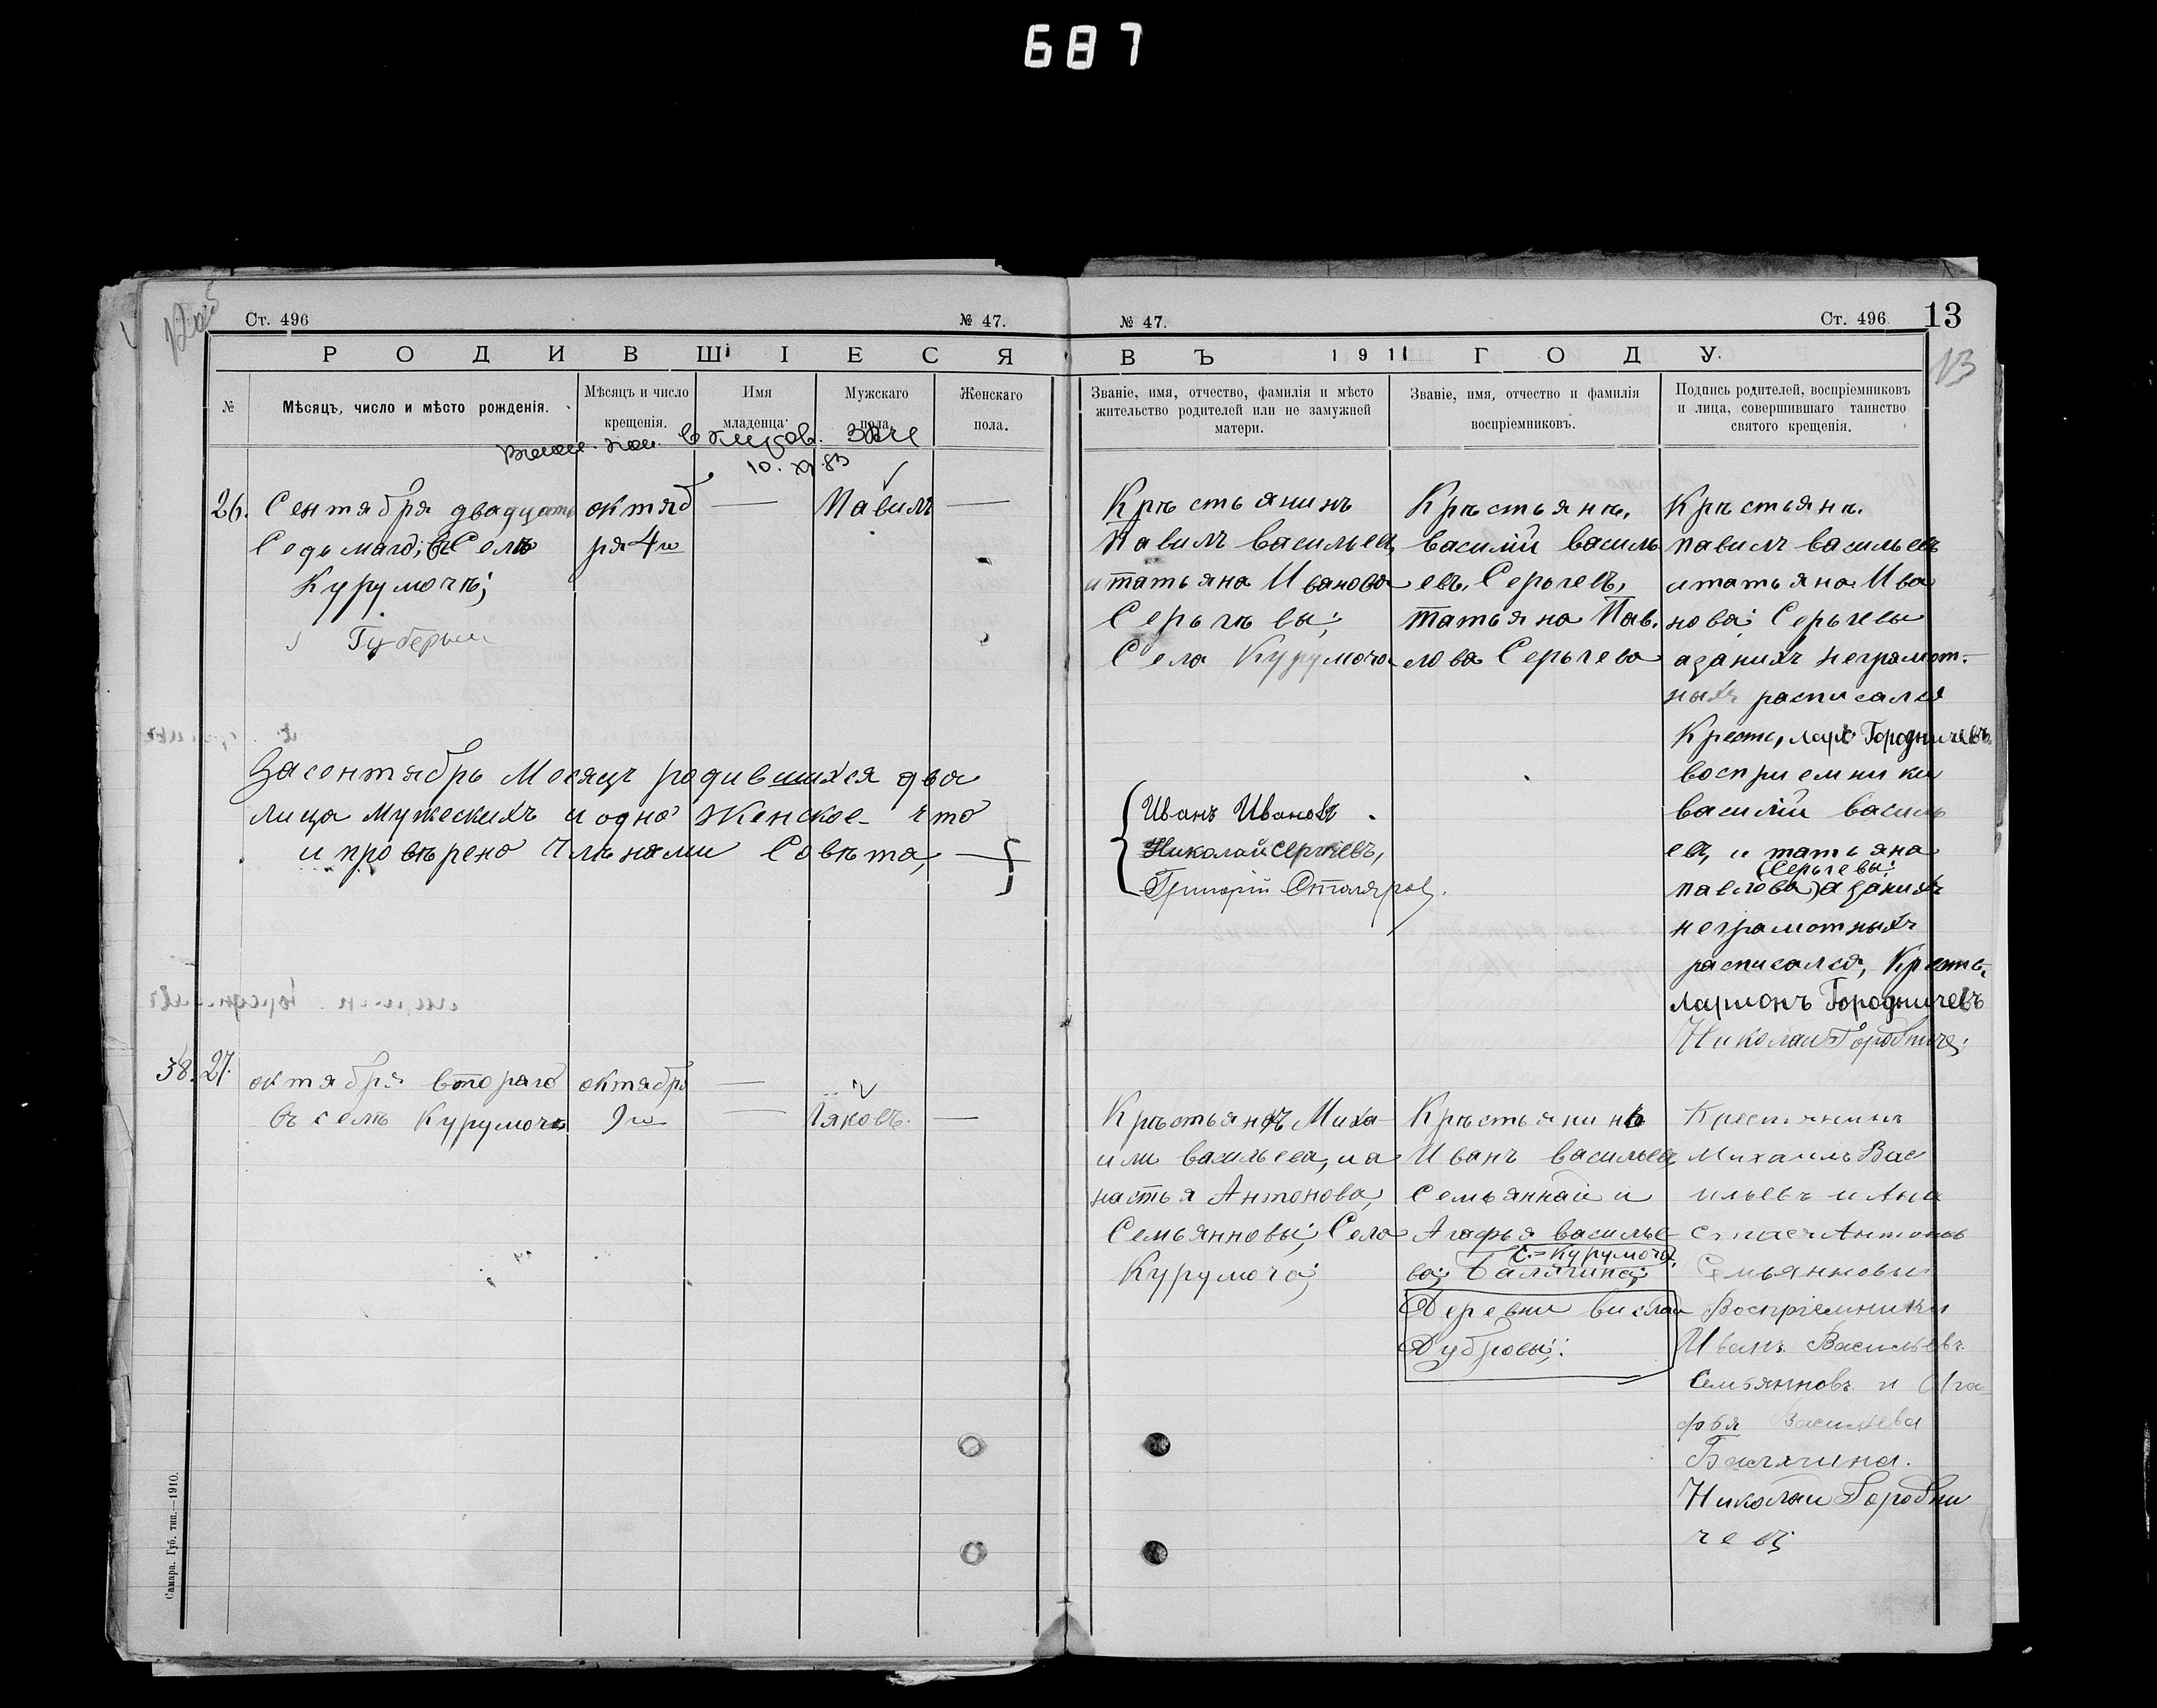 687
Ст. 496
№ 47.
№ 47.
Ст. 496
13
13
РОДИВШІЕСЯ
ВЪ 1911 ГОДУ.
№
Мѣсяцъ, число и мѣсто рожденія.
Мѣсяцъ и число крещенія.
Имя младенца
Мужскаго пола.
Женскаго пола.
Званіе, имя, отчество, фамилія и мѣсто жительство родителей или не замужней матери.
Званіе, имя, отчество и фамилія воспріемниковъ.
Подпись родителей, воспріемниковъ и лица, совершившаго таинство святого крещенія.
26.
Сентября двадцать
Седьмаго, въ Селѣ
Курумочѣ;
октяб
ря 4го
—
Павилъ
—
Крѣстьянинъ
Павилъ Васильев,
и татьяна Иванова
Серьгѣвы;
Села Курумоча
Крѣстьянѣ,
василий василь
евъ, Серьгевъ,
татьяна Пав.
лова Серьгева
Крѣстьянѣ.
павилъ васильевъ
и татьяна Ива
нова; Серьгевы
а за нихъ неграмот-
ныхъ расписался
Крест, Лар. Городничевъ
восприемники
василий василь
евъ, и татьяна
(Серьгевы:
павлова) а за нихъ
неграмотныхъ
расписался, Крест.
ларионъ Городничевъ
Николаи Городниче;
За сентябрь Месяцъ родившихся два
лица Мужескихъ и одно Женское- что
и провѣрено Члѣнами Совѣта, —
Иванъ Ивановъ
Николай Сергѣевъ,
Григорій Столяров.
38.
27.
октября втораго
въ селѣ Курумочѣ
октября
9го
—
—
Іяковъ.
—
Крѣстьянѣ Миха
или васильева, и а
настья Антонова,
Семьянновы; Села
Курумоча;
Крѣстьянинѣ
Иванъ васильев
Семьяннай и
Агафья василье
С.-Курумоча.
ва; Балячина;
Деревни вислай
Дубровы;:
Крестьянинъ
Михаилъ Вас
ильевъ и Ана
стасья Антонов
Семьянновы
Воспріемники
Иванъ Васильевъ
Семьянновъ и Ага
фья Васильева
Балячина.
Николаи Городни
чевъ
Самара. Губ. тип.—1910.